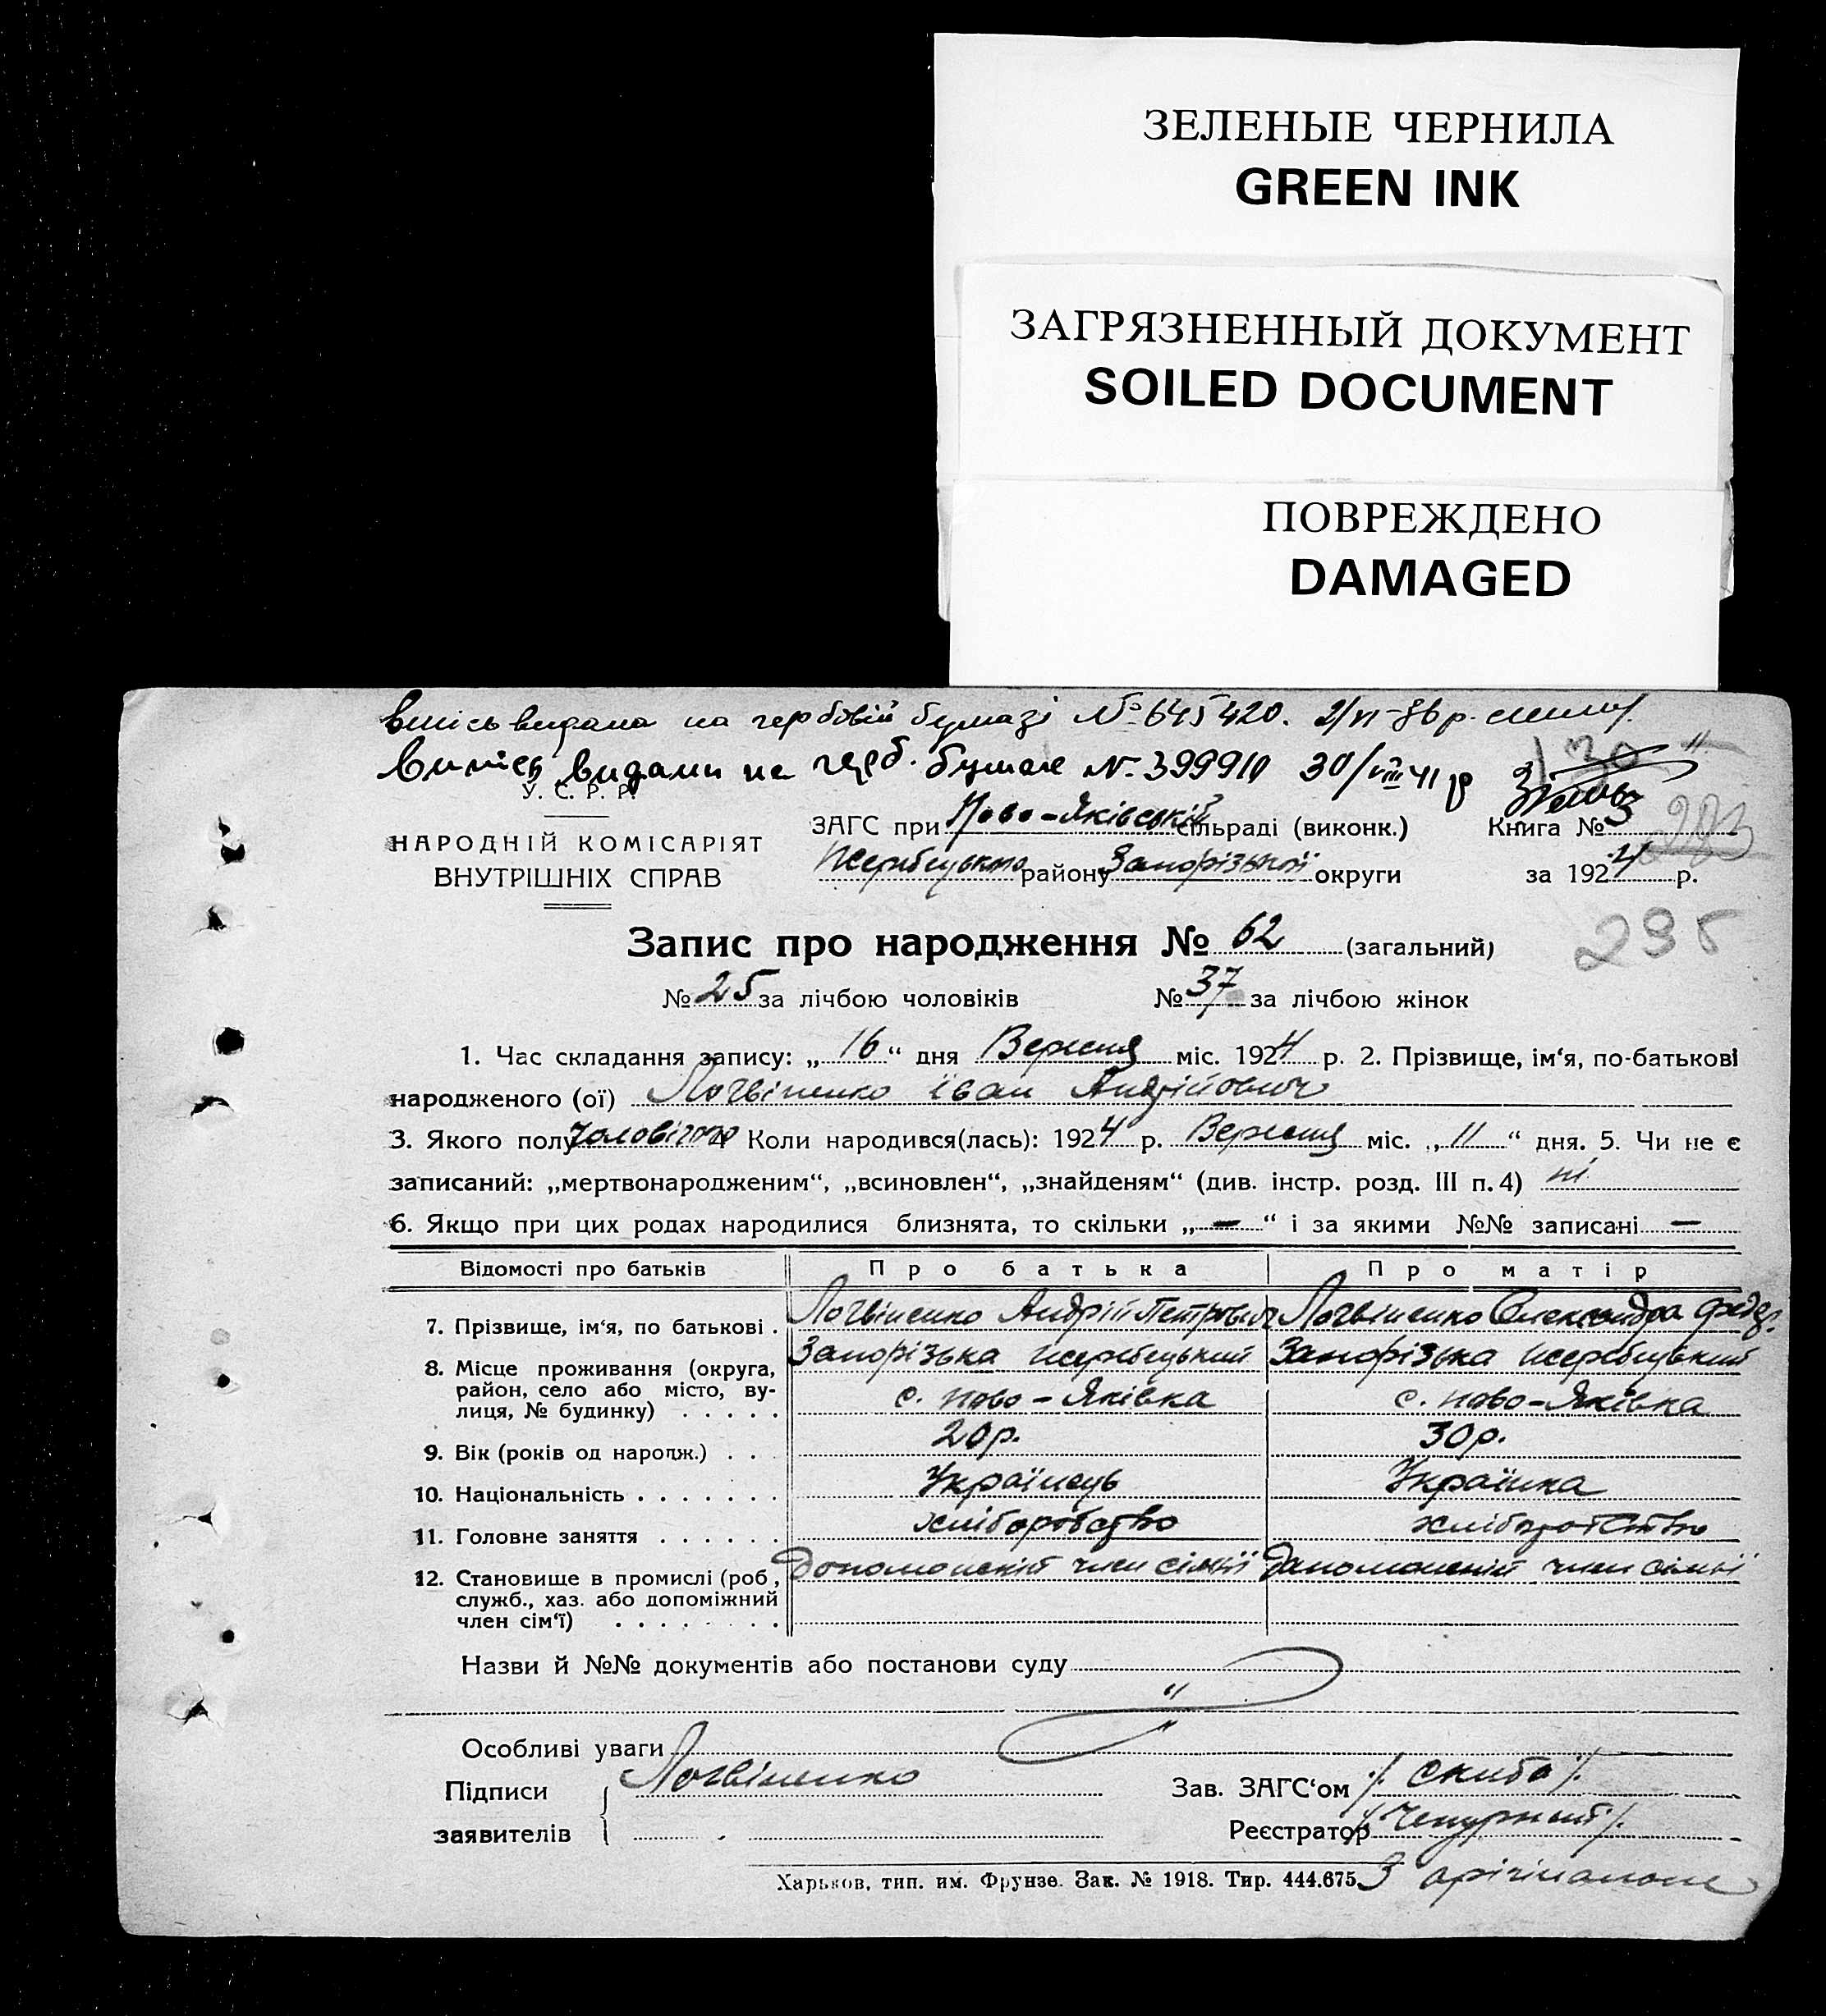 ЗЕЛЕНЫЕ ЧЕРНИЛА
GREEN INK
ЗАГРЯЗНЕННЫЙ ДОКУМЕНТ
SOILED DOCUMENT
ПОВРЕЖДЕНО
DAMAGED
Випісь видана на гербовій бумазі № 645420. 2/VI-36 р.
Випісь видами на герб. бумазе №. 399910 30/VIII 41 р
130
У. С. Р. Р.
НАРОДНІЙ КОМІСАРІЯТ
ВНУТРІШНІХ СПРАВ
ЗАГС при Ново-Яківській сільраді (виконк.) Книга № 3
Жеребецького району Запорізької округи за 1924 р.
283
Запис про народження № 62 (загальний)
295
№ 25 за лічбою чоловіків № 37 за лічбою жінок
1. Час складання запису: „16“ дня Вересня міс. 1924 р. 2. Прізвище, ім‘я, по-батькові
народженого (ої) Логвіненко Іван Андрійович
3. Якого полу чоловічого 4 Коли народився(лась): 1924 р. Вересня міс. „11“ дня. 5. Чи не є
записаний: „мертвонародженим“, „всиновлен“, „знайденям“ (див. інстр. розд. III п. 4) ні
6. Якщо при цих родах народилися близнята, то скільки „—“ і за якими №№ записані —
Відомості про батьків Про батька Про матір
7. Прізвище, ім‘я, по батькові . Логвіненко Андрій Петрович Логвіненко Олександра Федор.
8. Місце проживання (округа, район, село або місто, вулиця, № будинку) . . . . . Запорізька Жеребецький Запорізька Жеребецький
с. Ново-Яківка с. Ново-Яківка
9. Вік (років од народж.) . . . 20 р. 30 р.
10. Національність . . . . . . . Українець Українка
11. Головне заняття . . . . . . хліборобство хліборобство
12. Становище в промислі (роб., служб., хаз. або допоміжний член сім‘ї) . . . . . . . Допоможній член сімьї Допоможній член сімьї
Назви й №№ документів або постанови суду
Особливі уваги
Підписи заявителів Логвіненко
Зав. ЗАГС‘ом /. Скиба /.
Реєстратор /. Чепурний /.
Харьков, тип. им. Фрунзе. Зак. № 1918. Тир. 444.675.
З орігіналом